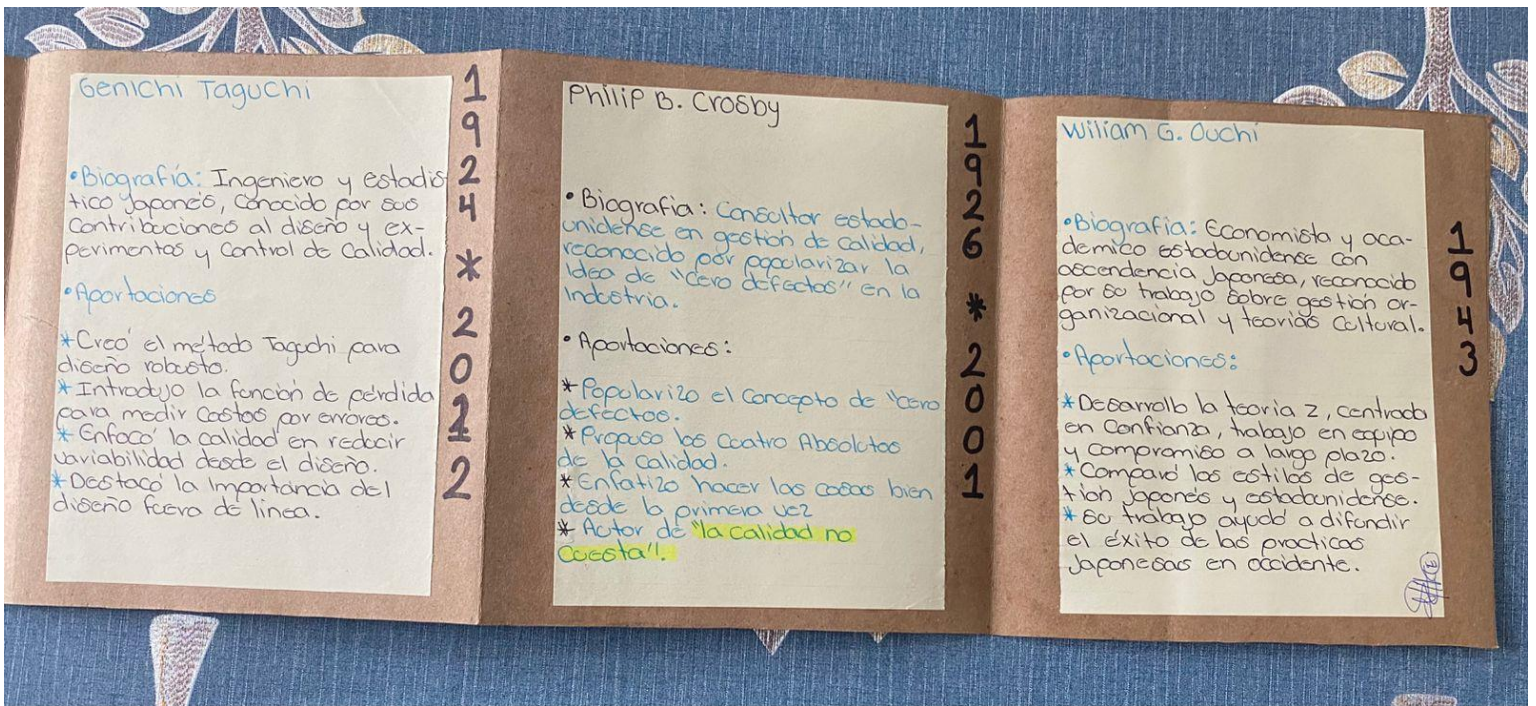 Genichi Taguchi
•Biografía: Ingeniero y estadís
tico Japonés, Conocido por sus
Contribuciones al diseño y ex-
perimentos y Control de Calidad.
•Aportaciones
*Creó el método Taguchi para
diseño robusto.
*Introdujo la función de pérdida
para medir Costos por errores.
*Enfocó la calidad en reducir
variabilidad desde el diseño.
*Destacó la Importancia del
diseño fuera de línea.
1
9
2
4
*
2
0
1
2
Philip B. Crosby
•Biografía: Consultor estado-
unidense en gestión de calidad,
reconocido por popularizar la
Idea de "Cero defectos" en la
Industria.
•Aportaciones:
*Popularizo el Concepto de "cero
defectos.
*Propuso los Cuatro Absolutos
de la calidad.
*Enfatizo hacer las cosas bien
desde la primera vez
*Autor de "la calidad no
Cuesta".
1
9
2
6
*
2
0
0
1
Wiliam G. Ouchi
•Biografía: Economista y aca-
demico estadounidense con
ascendencia Japonesa, reconocido
por su trabajo sobre gestión or-
ganizacional y teorías Cultural.
•Aportaciones:
*Desarrollo la teoría z, centrado
en Confianza, trabajo en equipo
y compromiso a largo plazo.
*Comparó los estilos de ges-
tion Japonés y estadounidense.
*su trabajo ayudó a difundir
el éxito de las practicas
Japonesas en occidente.
1
9
4
3